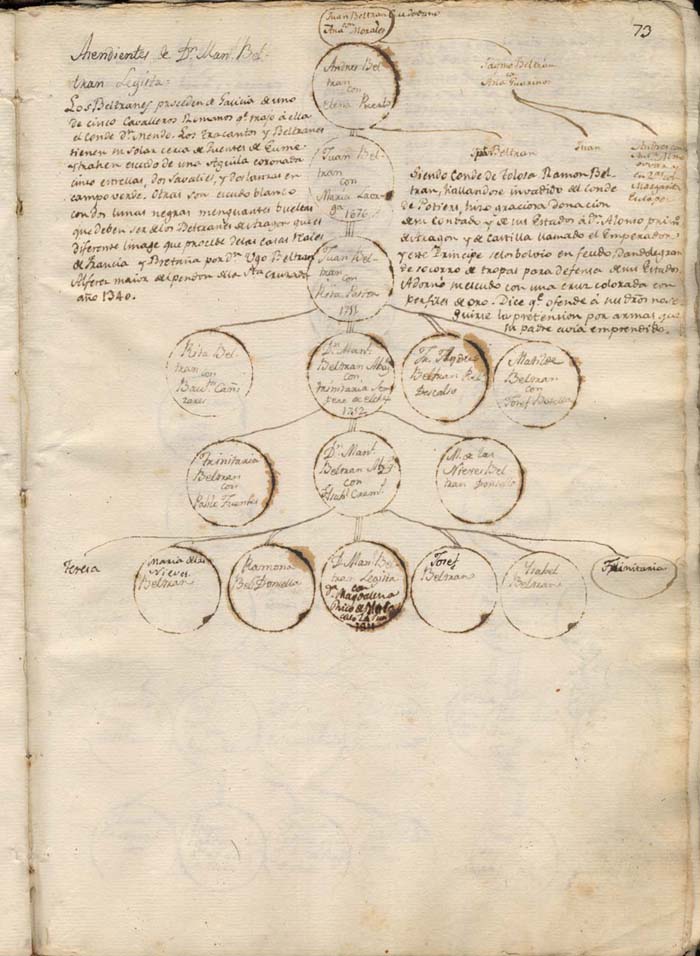 73
Juan Beltran
con
Ana Morales
Asendientes de Dn. Manl. Bel-
tran Legista.
Los Beltranes proceden de Galicia de uno
de cinco Cavalleros Romanos qe. trajo á ella
el Conde Dn. Mendo. Los Tracantos y Beltranes
tienen su solar cerca de Puentes de Eume
y trahen escudo de una Aguila coronada
cinco estrellas, dos Savalies, y dos lanzas en
campo verde. Otras son escudo blanco
con dos lunas negras menguantes bueltas
que deben ser de los Beltranes de Aragon que es
diferente linage que procede de las casas Reales
de Francia y Bretaña por Dn. Ugo Beltran
Alferez maior del pendon de la Sta. Cruzada
año 1340.
Andres Bel-
tran
con
Elena
Jayme Beltran
Ana
Beltran
Juan
Andres con
Siendo Conde de Tolosa Ramon Bel-
tran, hallandose invadido del Conde
de Potiers, hizo graciosa donacion
de su Contado y de sus Estados á Dn. Alonso
de Aragon y de Castilla llamado el Emperador
y este Principe selos bolvio en feudo, dandole gran-
de socorro de tropas para defensa de sus Estados.
Adornó su escudo con una cruz colorada con
perfiles de oro. Dice qe. ofende á su
la pretension por armas que
su padre avia emprendido.
Juan Bel-
tran
con
Maria
1676
Juan Bel-
tran
con
Rita
Rita Bel-
tran
con
Bauta. Cañi-
zares
Dn. Manl.
Beltran
con
Trinitaria Sem-
pere de Elch
1752
Fr. Andres
Beltran
Descalso
Matilde
Beltran
con
Josef
Trinitaria
Beltran
con
Pablo Fuentes
Dn. Manl.
Beltran
con
Isabl.
Ma. de las
Nieves Bel-
tran Donsella
Teresa
Maria de las
Nieves
Beltran
Ramona
Bel. Donsella
Dn. Manl. Bel-
tran Legista
con
Magdalena
Josef
Beltran
Ysabel
Beltran
Trinitaria